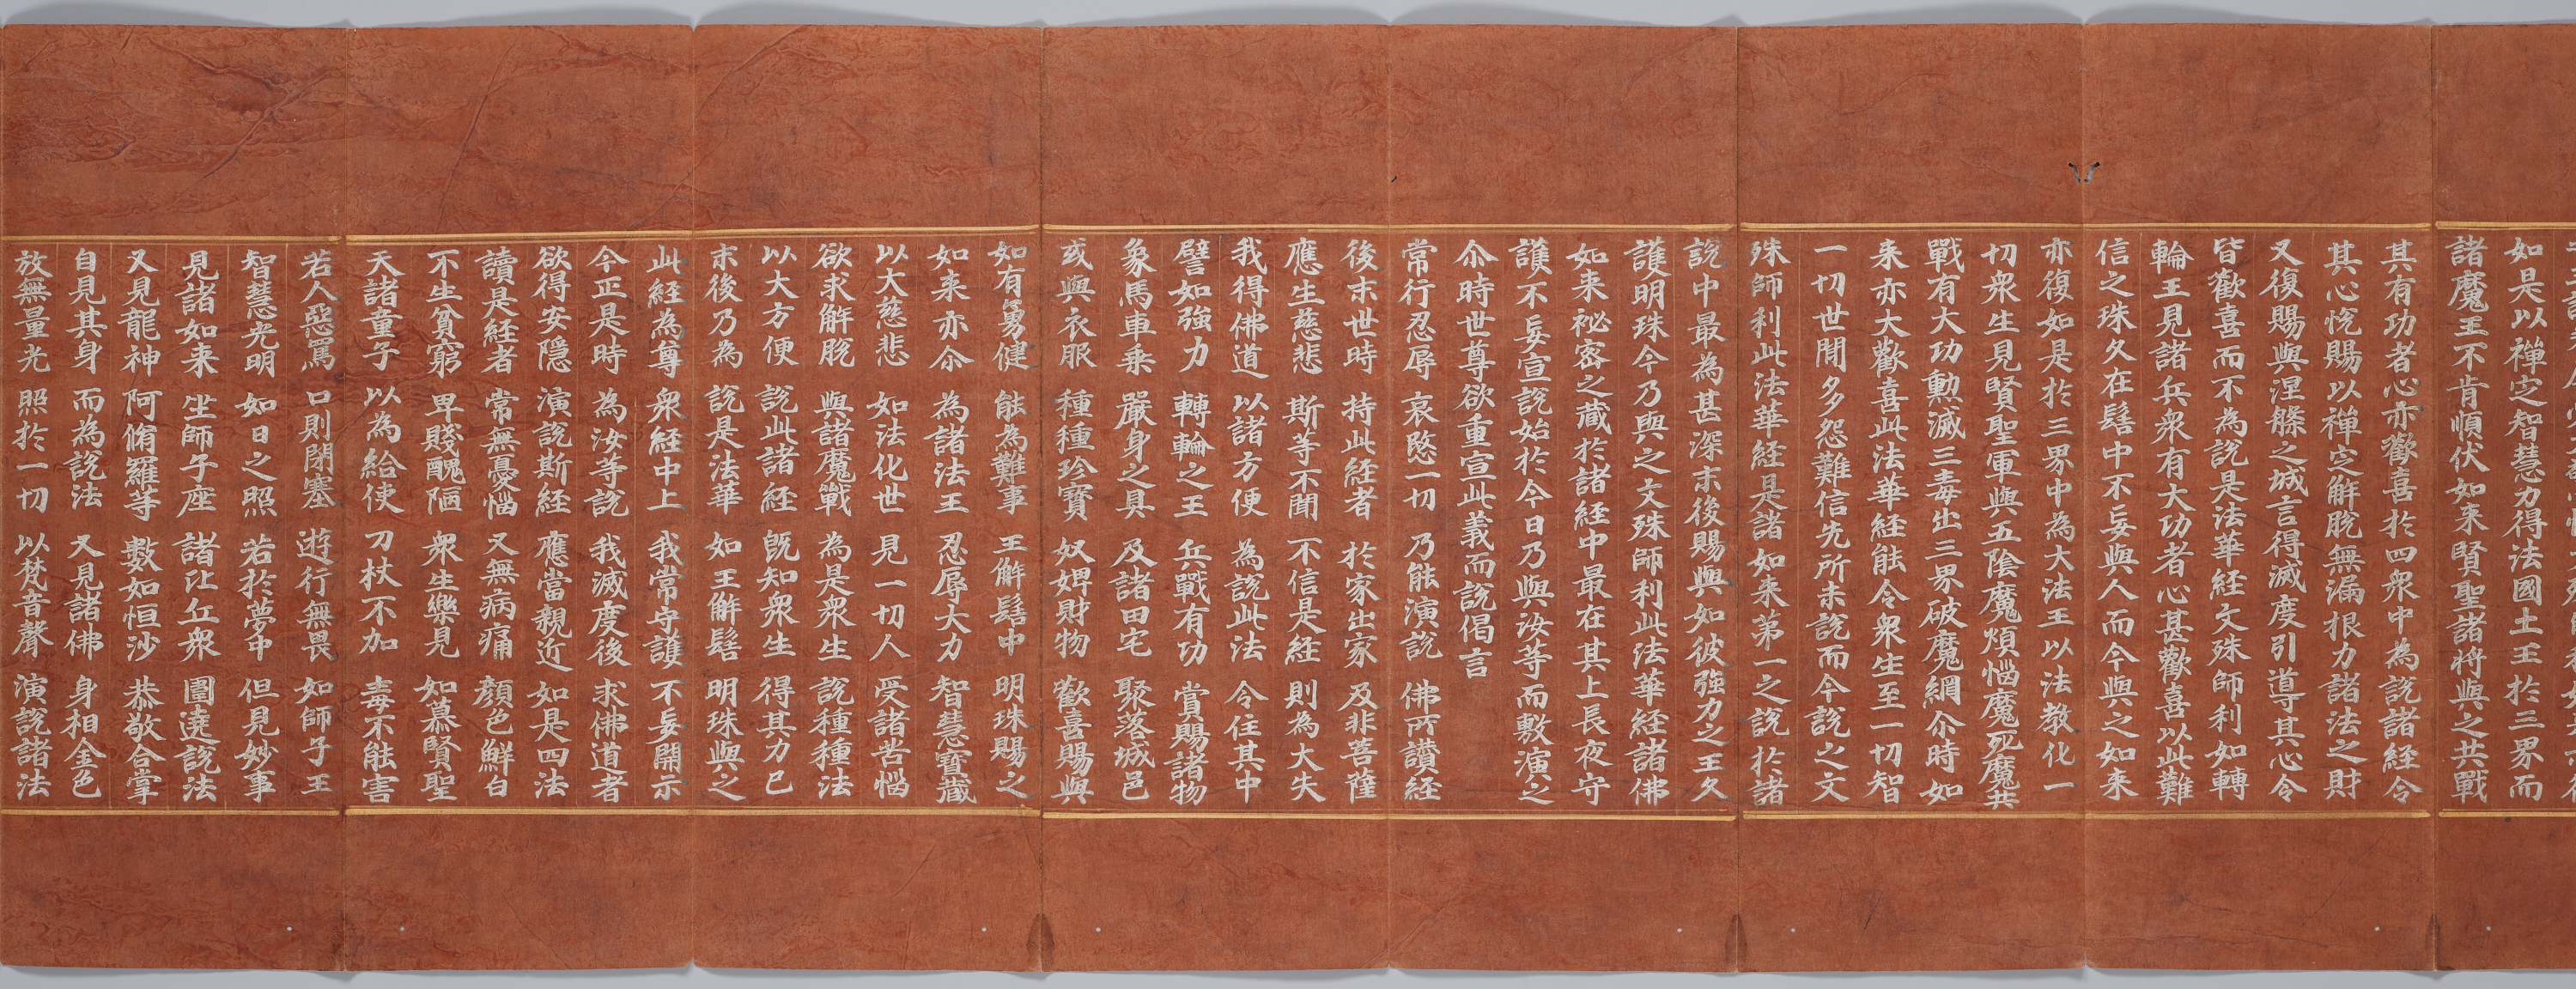 如是以禪定智慧力得法國土王於三界而
諸魔王不肯順伏如来賢聖諸将與之共戰
其有功者心亦歡喜於四衆中為說諸経令
其心恱賜以禅定解脫無漏根力諸法之財
又復賜與涅槃之城言得滅度引導其心令
皆歡喜而不為說是法華経文殊師利如轉
輪王見諸兵衆有大功者心甚歡喜以此難
信之珠久在髻中不妄與人而今與之如来
亦復如是於三界中為大法王以法教化一
切衆生見賢聖軍與五陰魔煩惱魔死魔共
戰有大功勲滅三毒出三界破魔網尒時如
来亦大歡喜此法華経能令衆生至一切智
一切世間多怨難信先所未說而今說之文
殊師利此法華経是諸如来第一之說於諸
說中最為甚深末後賜與如彼強力之王久
護明珠今乃與之文殊師利此法華経諸佛
如来祕密之蔵於諸経中最在其上長夜守
護不妄宣說始於今日乃與汝等而敷演之
尒時世尊欲重宣此義而說偈言
常行忍辱 哀愍一切 乃能演說 佛所讃経
後末世時 持此経者 於家出家 及非菩薩
應生慈悲 斯等不聞 不信是経 則為大失
我得佛道 以諸方便 為說此法 令住其中
譬如強力 轉輪之王 兵戰有功 賞賜諸物
象馬車乗 嚴身之具 及諸田宅 聚落城邑
或與衣服 種種珍寶 奴婢財物 歡喜賜與
如有勇健 能為難事 王解髻中 明珠賜之
如来亦尒 為諸法王 忍辱大力 智慧寶蔵
以大慈悲 如法化世 見一切人 受諸苦惱
欲求解脫 與諸魔戰 為是衆生 說種種法
以大方便 說此諸経 旣知衆生 得其力已
末後乃為 說是法華 如王解髻 明珠與之
此経為尊 衆経中上 我常守護 不妄開示
今正是時 為汝等說 我滅度後 求佛道者
欲得安隠 演說斯経 應當親近 如是四法
讀是経者 常無憂惱 又無病痛 顔色鮮白
不生貧窮 卑賤醜陋 衆生樂見 如慕賢聖
天諸童子 以為給使 刀杖不加 毒不能害
若人惡罵 口則閉塞 遊行無畏 如師子王
智慧光明 如日之照 若於夢中 但見妙事
見諸如来 坐師子座 諸比丘衆 圍遶說法
又見龍神 阿脩羅等 數如恒沙 恭敬合掌
自見其身 而為說法 又見諸佛 身相金色
放無量光 照於一切 以梵音聲 演說諸法